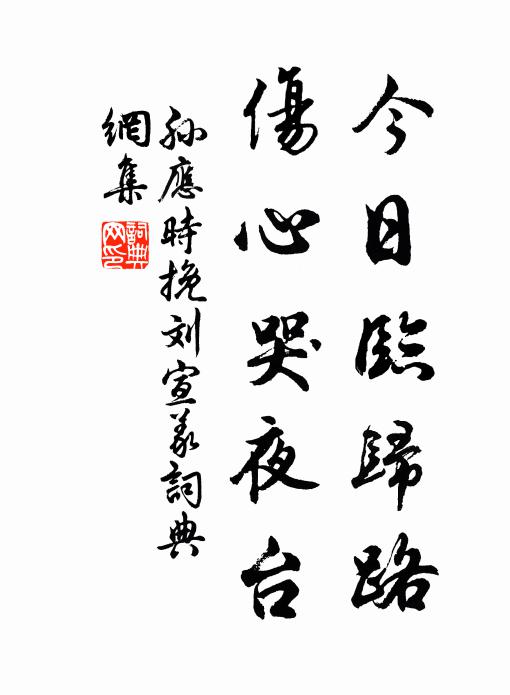 今日臨歸路
傷心哭夜台
孙應時挽刘宣義詞典
網集
詞典
网印